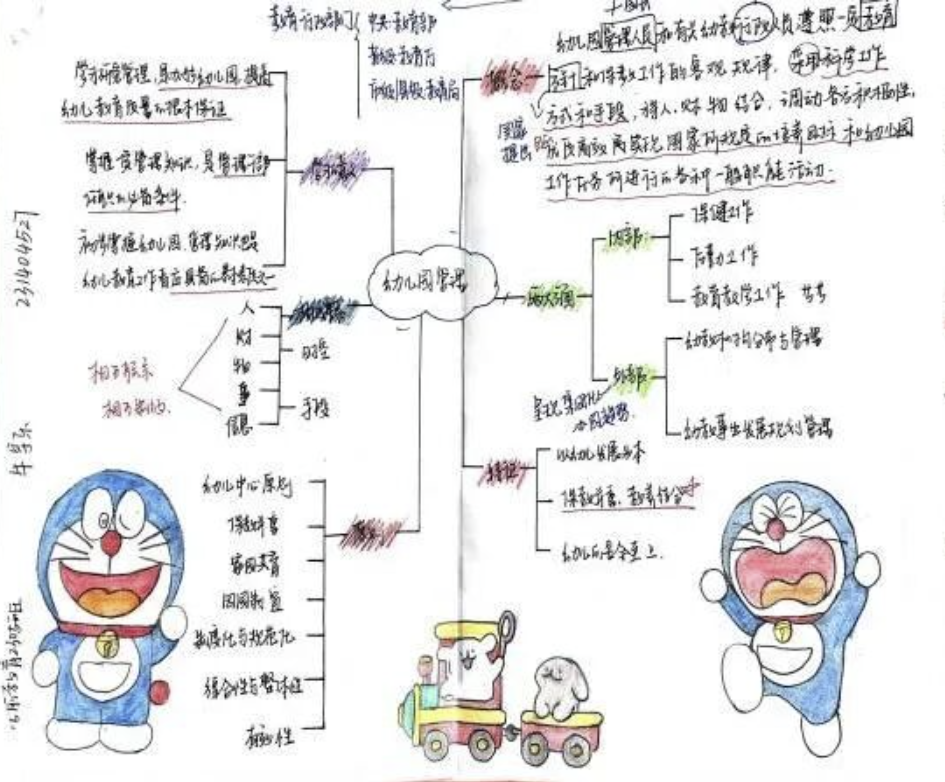 教育行政部门
中央-教育部
省级-教育厅
市级县级教育局
学习研究管理,是办好幼儿园,提高
幼儿教育质量的根本保证
掌握管理知识,是管理干部
任职的必备条件
初步掌握幼儿园管理知识是
幼儿教育工作者应具备的素质之一
学习意义
概念
幼儿园管理人员和有关幼教行政人员遵照一定教育
方针和保教工作的客观规律,采用科学工作
方式和手段,将人、财、物结合,调动各方积极性,
国家
提出
高效率实现国家所规定的培养目标和幼儿园
工作任务所进行的各种一般职能活动.
幼儿园管理
人
财
物
事
信息
时空
手段
相互联系
相互制约.
内部
保健工作
后勤工作
教育教学工作
外部
呈现集团化
幼教机构分布与管理
幼教事业发展规划管理
特征
以幼儿发展为本
保教并重、教养结合
幼儿的安全至上.
原则
幼儿中心原则
保教并重
家园共育
因园制宜
制度化与规范化
综合性与整体性
有效性
231404527